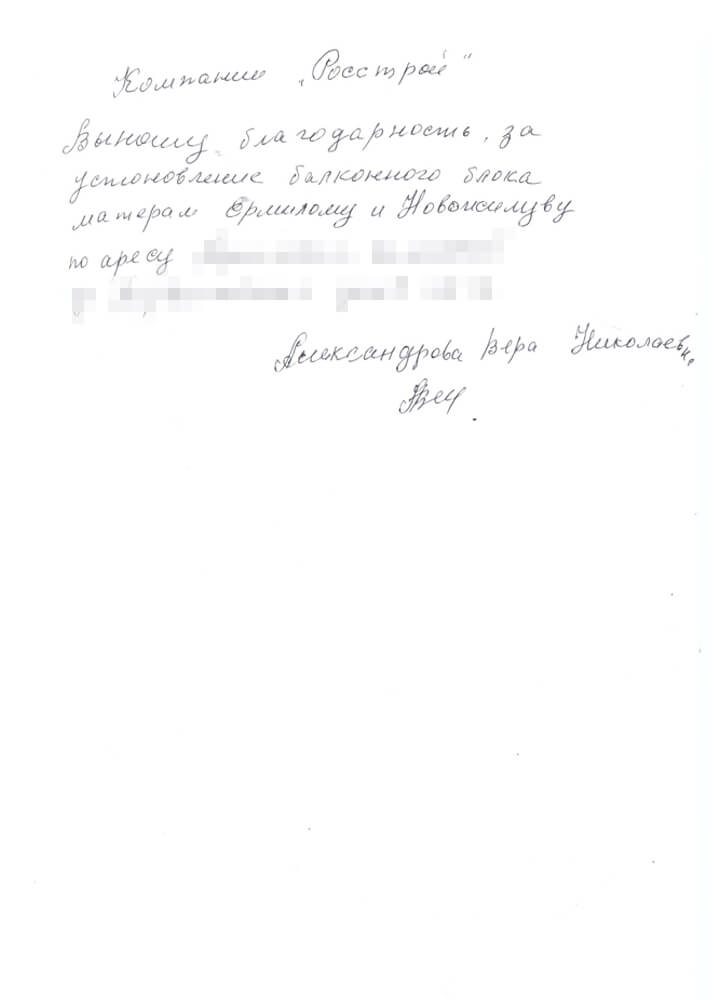 Компании „Росстрой"
Выношу благодарность, за
устоновление балконного блока
матерам Ермилому и Новожилуву
по аресу
Александрова Вера Николаевн